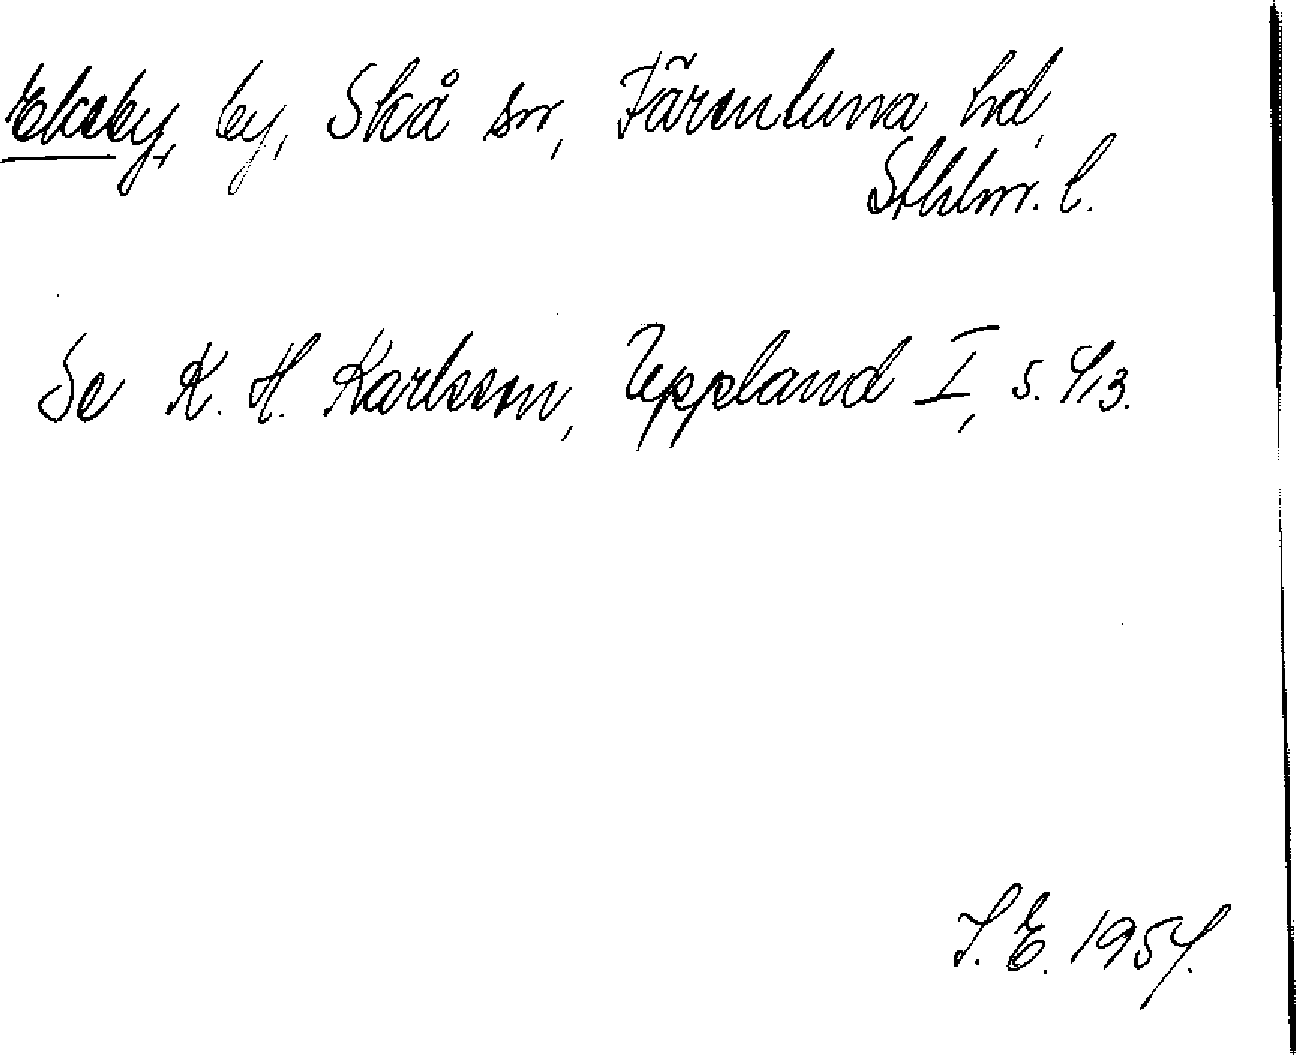 Ekeby, by, Skå sn, Färentuna hd,
Sthlm. l.
Se K. H. Karlsson, Uppland I, s. 413.
S. E. 1954.